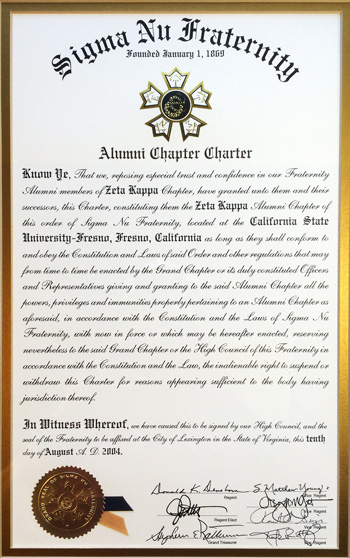 Sigma Nu Fraternity
Founded January 1, 1869
Alumni Chapter Charter
Know Ye, That we, reposing especial trust and confidence in our Fraternity
Alumni members of Zeta Kappa Chapter, have granted unto them and their
successors, this Charter, constituting them the Zeta Kappa Alumni Chapter of
this order of Sigma Nu Fraternity, located at the California State
University-Fresno, Fresno, California as long as they shall conform to
and obey the Constitution and Laws of said Order and other regulations that may
from time to time be enacted by the Grand Chapter or its duly constituted Officers
and Representatives giving and granting to the said Alumni Chapter all the
powers, privileges and immunities properly pertaining to an Alumni Chapter as
aforesaid, in accordance with the Constitution and the Laws of Sigma Nu
Fraternity, with now in force or which may be hereafter enacted, reserving
nevertheless to the said Grand Chapter or the High Council of this Fraternity in
accordance with the Constitution and the Law, the inalienable right to suspend or
withdraw this Charter for reasons appearing sufficient to the body having
jurisdiction thereof.
In Witness Whereof, we have caused this to be signed by our High Council, and the
seal of the Fraternity to be affixed at the City of Lexington in the State of Virginia, this tenth
day of August A. D. 2004.
Regent
Vice Regent
Regent Elect
Vice Regent
Vice Regent
Grand Treasurer
Vice Regent